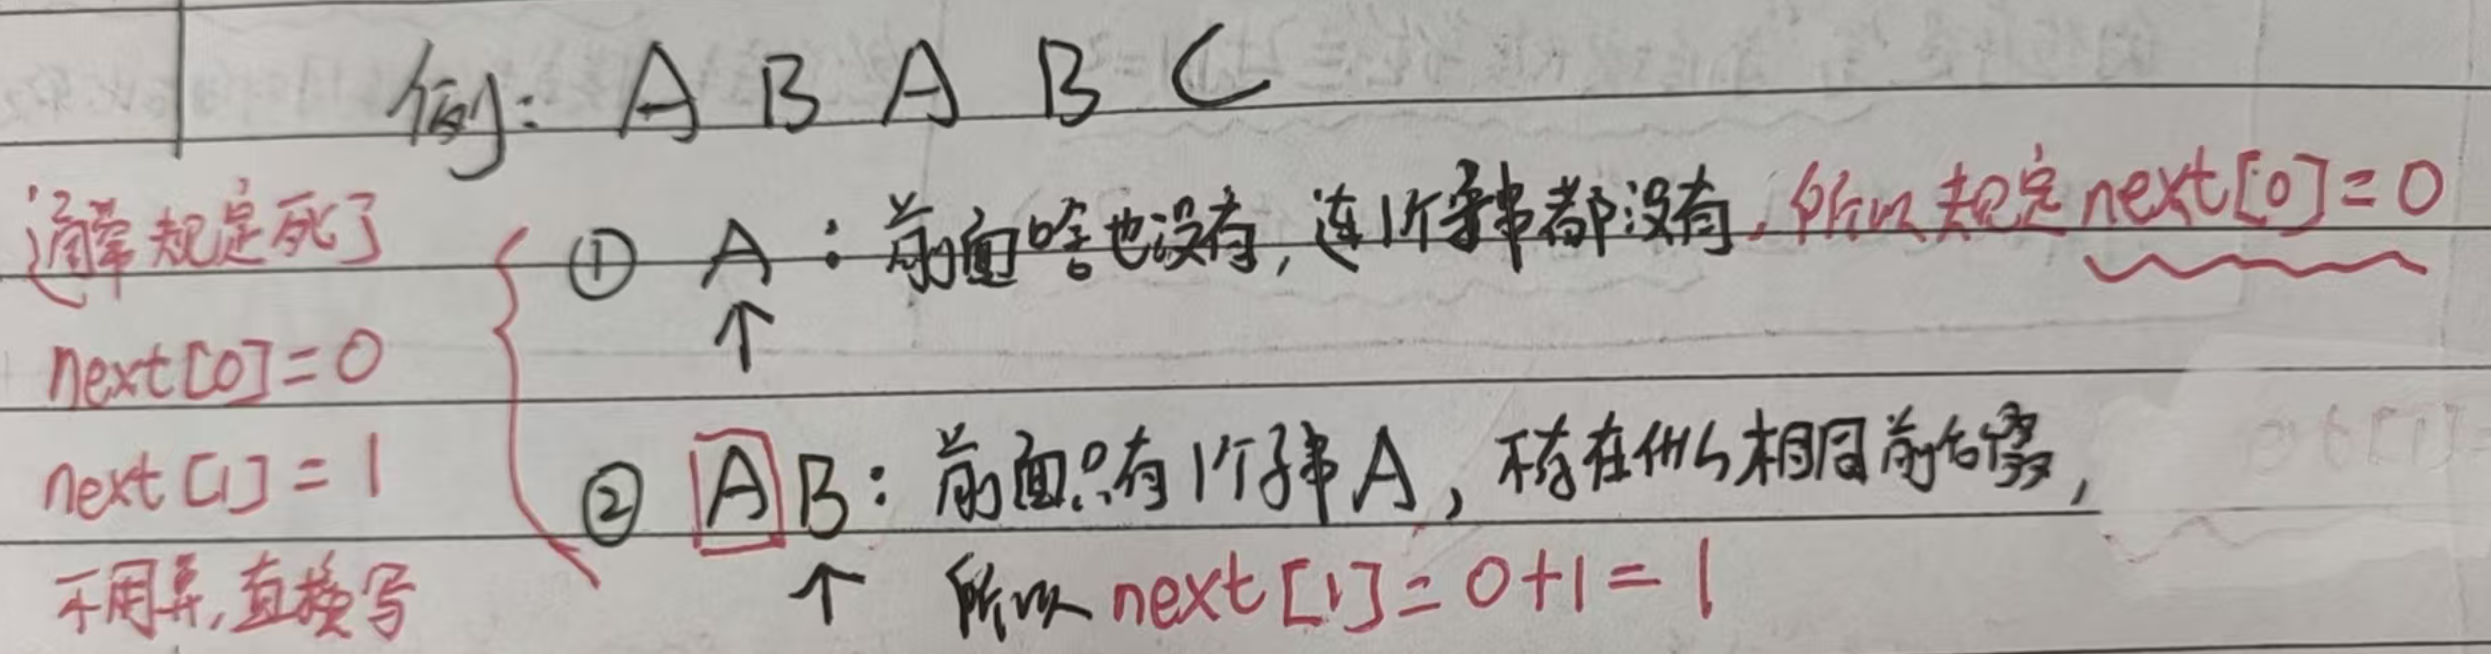 例: A B A B C
通常规定死了
① A : 前面啥也没有, 连1个子串都没有, 所以规定next[0]=0
↑
next[0]=0
next[1]=1
② AB: 前面只有1个子串A, 不存在什么相同前后缀,
不用算, 直接写
↑ 所以 next[1]=0+1=1